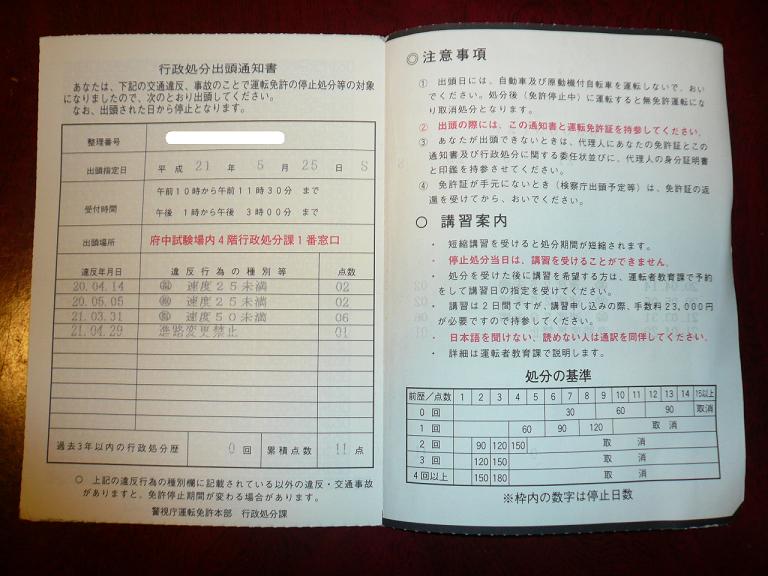 行政処分出頭通知書
あなたは、下記の交通違反、事故のことで運転免許の停止処分等の対象
になりましたので、次のとおり出頭してください。
なお、出頭された日から停止となります。
整理番号
出頭指定日 平成 21 年 5 月 25 日 S
受付時間 午前10時から午前11時30分 まで
午後 1時から午後 3時00分 まで
出頭場所 府中試験場内4階行政処分課1番窓口
違反年月日 違反行為の種別等 点数
20.04.14 速度25未満 02
20.05.05 速度25未満 02
21.03.31 速度50未満 06
21.04.29 進路変更禁止 01
過去3年以内の行政処分歴 0 回 累積点数 11 点
○ 上記の違反行為の種別欄に記載されている以外の違反・交通事故
がありますと、免許停止期間が変わる場合があります。
警視庁運転免許本部 行政処分課
◎注意事項
① 出頭日には、自動車及び原動機付自転車を運転しないで、おい
でください。処分後（免許停止中）に運転すると無免許運転にな
り取消処分となります。
② 出頭の際には、この通知書と運転免許証を持参してください。
③ あなたが出頭できないときは、代理人にあなたの免許証とこの
通知書及び行政処分に関する委任状並びに、代理人の身分証明書
と印鑑を持参させてください。
④ 免許証が手元にないとき（検察庁出頭予定等）は、免許証の返
還を受けてから、おいでください。
○ 講習案内
・ 短縮講習を受けると処分期間が短縮されます。
・ 停止処分当日は、講習を受けることができません。
・ 処分を受けた後に講習を希望する方は、運転者教育課で予約
をして講習日の指定を受けてください。
・ 講習は2日間ですが、講習申し込みの際、手数料23,000円
が必要ですので持参してください。
・ 日本語を聞けない、読めない人は通訳を同伴してください。
・ 詳細は運転者教育課で説明します。
処分の基準
前歴／点数 1 2 3 4 5 6 7 8 9 10 11 12 13 14 15以上
0 回 30 60 90 取消
1 回 60 90 120 取 消
2 回 90 120 150 取 消
3 回 120 150 取 消
4回以上 150 180 取 消
※枠内の数字は停止日数